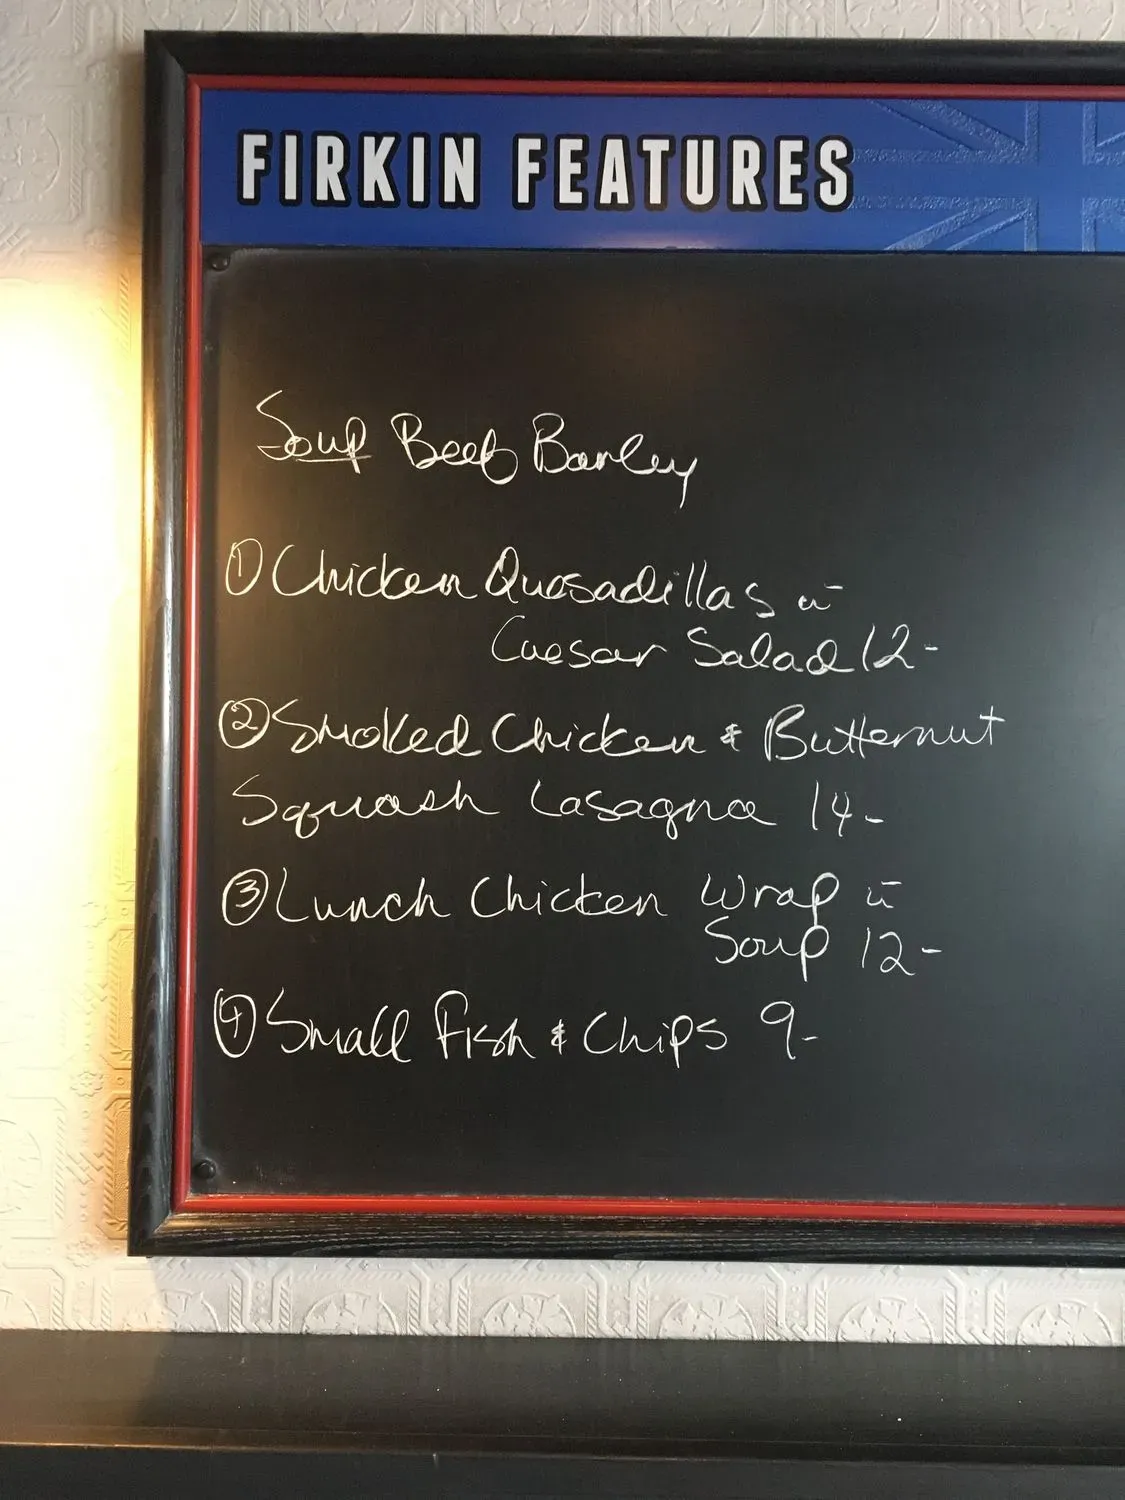 FIRKIN FEATURES
Soup Beef Barley
① Chicken Quesadillas w
Caesar Salad 12-
② Smoked Chicken & Butternut
Squash Lasagna 14-
③ Lunch Chicken Wrap w
Soup 12-
④ Small Fish & Chips 9-